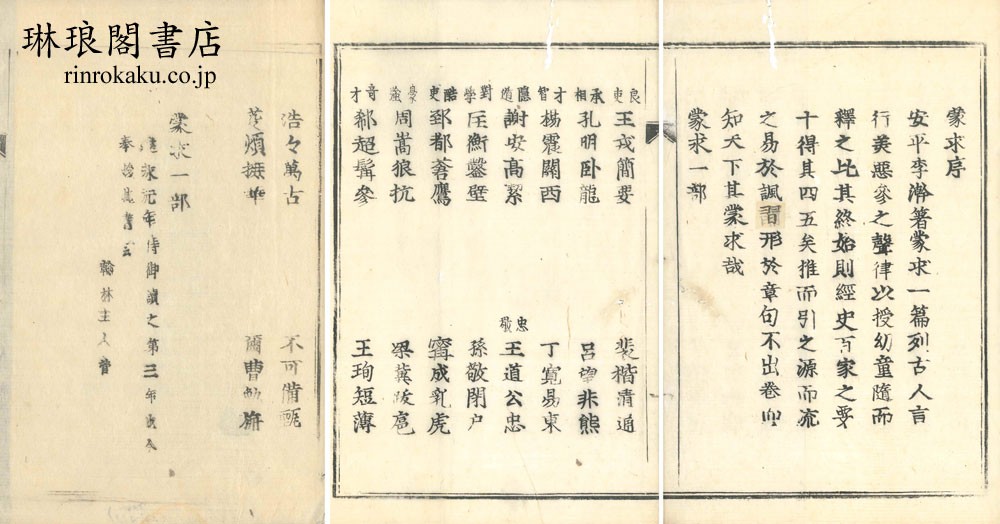 琳琅閣書店
rinrokaku.co.jp
蒙求序
安平李瀚著蒙求一篇列古人言
行美惡參之聲律以授幼童隨而
釋之比其終始則經史百家之要
十得其四五矣推而引之源而流
之易於諷習形於章句不出卷而
知天下其蒙求哉
蒙求一部
良吏 王戎簡要 裴楷清通
承相 孔明卧龍 呂望非熊
才智 楊震關西 丁寬易東
隱 謝安高絜 忠 王道公忠
對學 匡衡鑿壁 孫敬閉户
酷吏 郅都蒼鷹 寗成乳虎
豪強 周嵩狼抗 梁冀跋扈
奇才 郗超髯參 王珣短薄
浩々萬古 不可備甄
芟煩摭華 爾曹勉旃
蒙求一部
永元年侍御讀之第三年
翰林主人